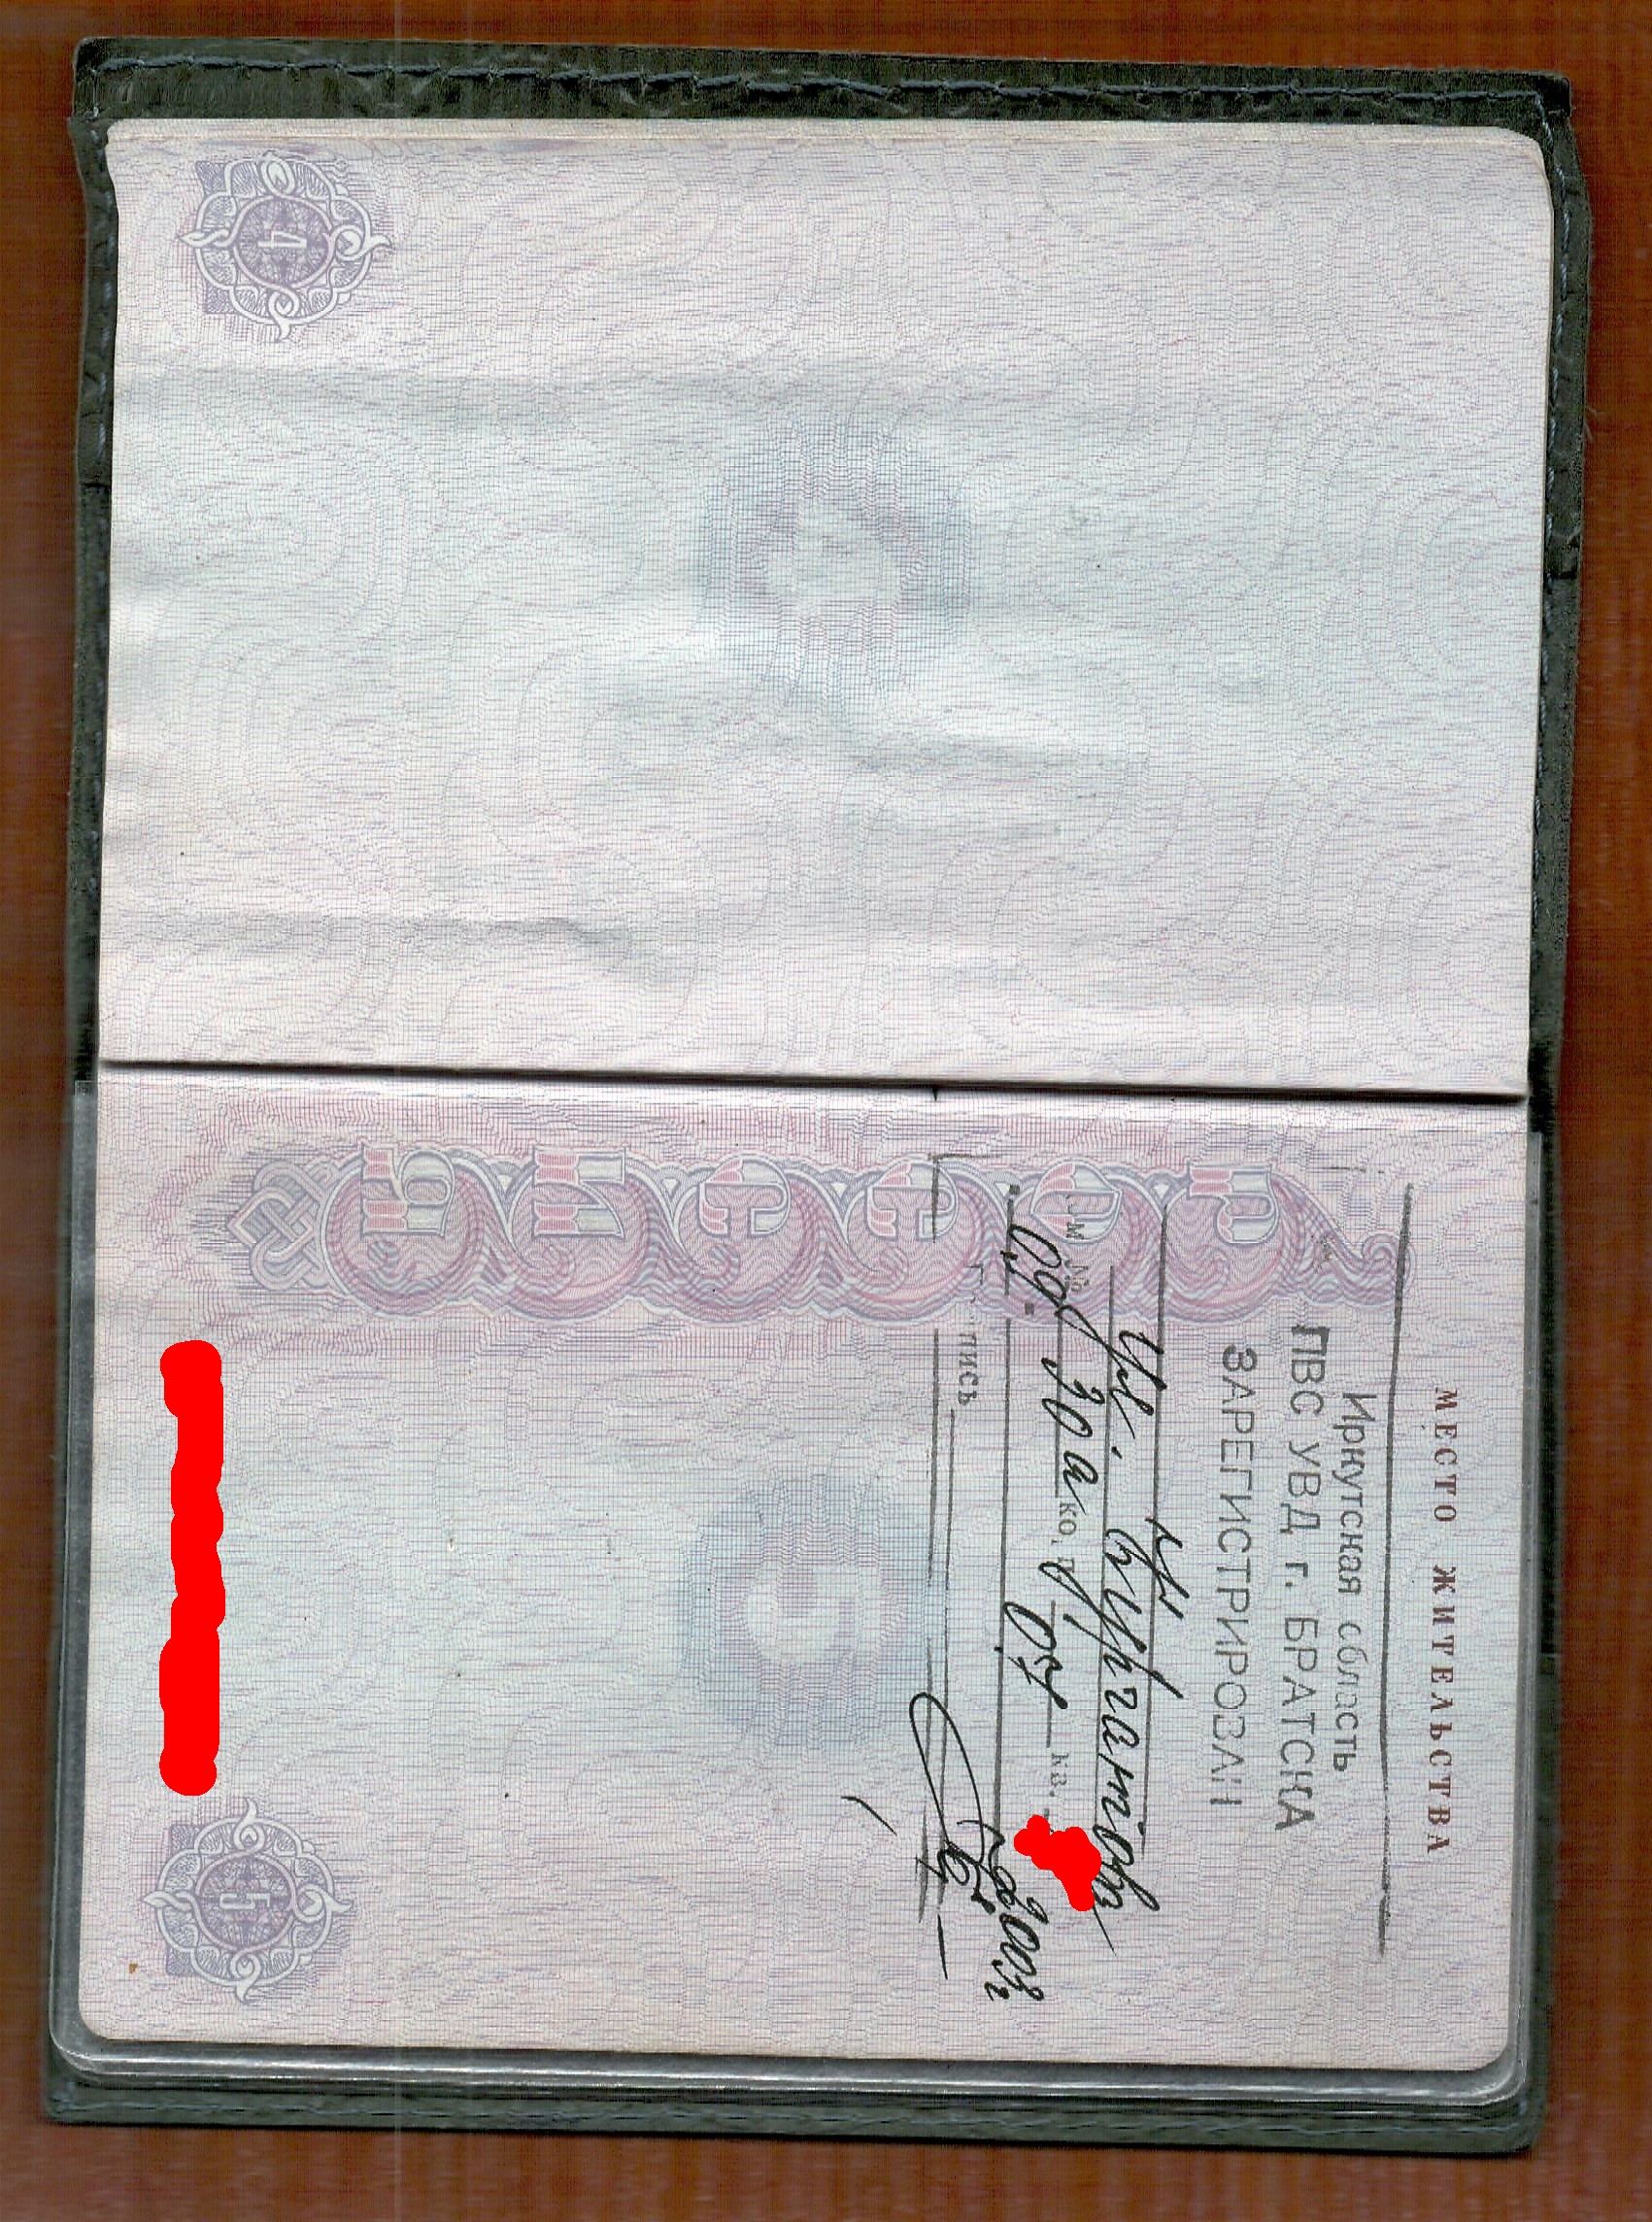 4
МЕСТО ЖИТЕЛЬСТВА
Иркутская область
ПВС УВД г. БРАТСКА
ЗАРЕГИСТРИРОВАН
ул. Курчатова
30а
кв.
07
2003г
пись
РОССИЯ
5